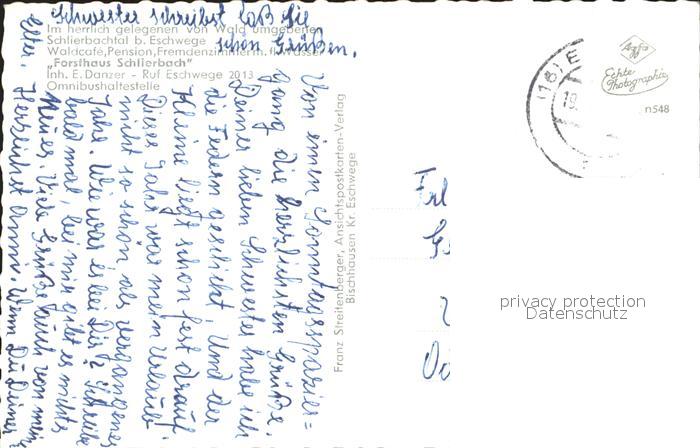 Im herrlich gelegenen von Wald umgebenen
Schlierbachtal b. Eschwege
Waldcafé, Pension, Fremdenzimmer m. fl. Wasser
„Forsthaus Schlierbach"
Inh. E. Danzer - Ruf Eschwege 2013
Omnibushaltestelle
Von einem Sonntagsspazier=
gang die herzlichsten Grüße.
Deiner lieben Schwester habe ich
die Federn geschickt, und der
Kleine liegt schon fest drauf
Dieses Jahr war mein Urlaub
nicht so schön, als vergangenes
Jahr. Wie war es bei Dir? Schreibe
bald mal, bei mir gibt es nichts
Neues. Viele Grüße auch von mein
Eltern. Herzlichst Anni. Wenn Du Deiner
Schwester schreibst laß Sie
schön Grüßen.
Franz Streitenberger, Ansichtspostkarten-Verlag
Bischhausen Kr. Eschwege
Frl
(16) E
19.
Agfa
Echte
Photographie
n548
privacy protection
Datenschutz